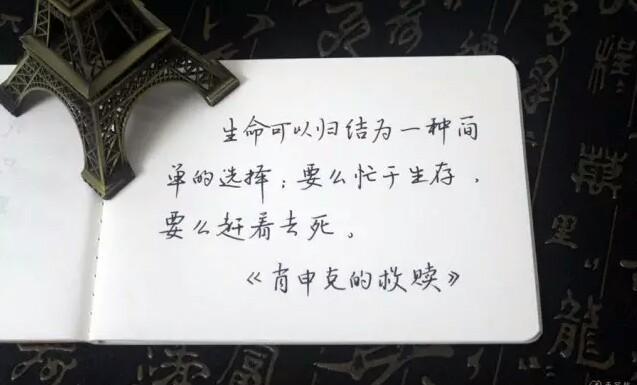 生命可以归结为一种简
单的选择：要么忙于生存，
要么赶着去死。
《肖申克的救赎》
萬
里
龍